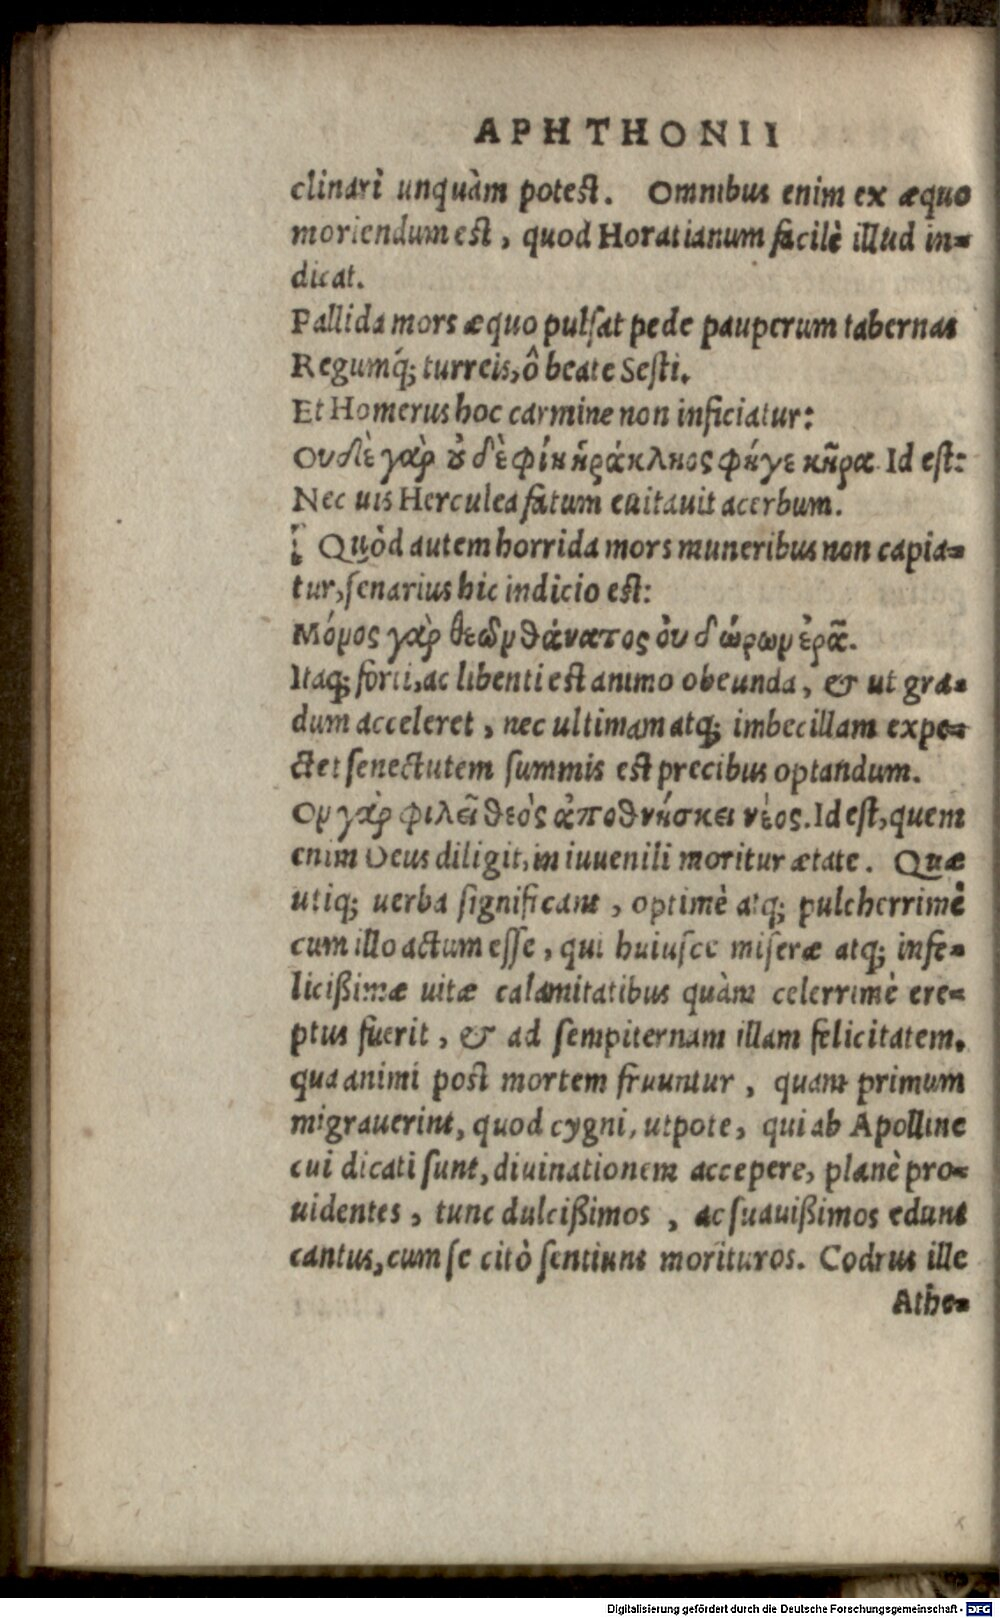 APHTHONII
clinari unquàm potest. Omnibus enim ex æquo
moriendum est, quod Horatianum facilè illud in=
dicat.
Pallida mors æquo pulsat pede pauperum tabernas
Regumq́; turreis, ô beate Sesti.
Et Homerus hoc carmine non inficiatur:
Ουδὲ γὰρ ȣδὲ φίη ἡράκληος φήγε κῆρα. Id est:
Nec uis Herculea fatum euitauit acerbum.
Quòd autem horrida mors muneribus non capia=
tur, senarius hic indicio est:
Μόμος γὰρ θεῶν θάνατος ὀυ δώρων ἐρᾶ.
Itaq; forti, ac libenti est animo obeunda, & ut gra=
dum acceleret, nec ultimam atq; imbecillam expe=
ctet senectutem summis est precibus optandum.
Ον γὰρ φιλεῖ θεὸς ἀποθνήσκει νέος. Id est, quem
enim Deus diligit, in iuuenili moritur ætate. Quæ
utiq; uerba significant, optimè atq; pulcherrimè
cum illo actum esse, qui huiusce miseræ atq; infe=
licißimæ uitæ calamitatibus quàm celerrimè ere=
ptus fuerit, & ad sempiternam illam felicitatem,
qua animi post mortem fruuntur, quam primum
migrauerint, quod cygni, utpote, qui ab Apolline
cui dicati sunt, diuinationem accepere, planè pro=
uidentes, tunc dulcißimos, ac suauißimos edunt
cantus, cum se citò sentiunt morituros. Codrus ille
Athe=
Digitalisierung gefördert durch die Deutsche Forschungsgemeinschaft - DFG